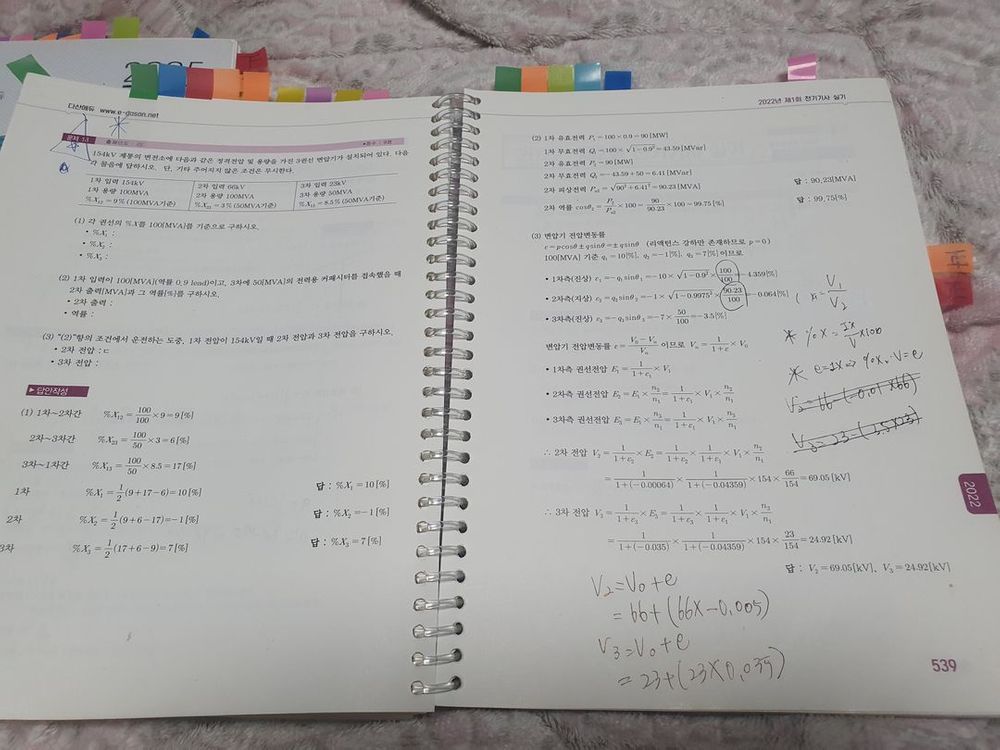 2025
다산에듀 www.e-dasan.net
문제 13
154kV 계통의 변전소에 다음과 같은 정격전압 및 용량을 가진 3권선 변압기가 설치되어 있다. 다음
각 물음에 답하시오. 단, 기타 주어지지 않은 조건은 무시한다.
1차 입력 154kV 2차 입력 66kV 3차 입력 23kV
1차 용량 100MVA 2차 용량 100MVA 3차 용량 50MVA
%X₁₂ = 9%(100MVA기준) %X₂₃ = 3%(50MVA기준) %X₁₃ = 8.5%(50MVA기준)
(1) 각 권선의 %X를 100[MVA]를 기준으로 구하시오.
• %X₁ :
• %X₂ :
• %X₃ :
(2) 1차 입력이 100[MVA](역률 0.9 lead)이고, 3차에 50[MVA]의 전력용 커패시터를 접속했을 때
2차 출력[MVA]과 그 역률[%]를 구하시오.
• 2차 출력 :
• 역률 :
(3) "(2)"항의 조건에서 운전하는 도중, 1차 전압이 154kV일 때 2차 전압과 3차 전압을 구하시오.
• 2차 전압 :
• 3차 전압 :
▶ 답안작성
(1) 1차~2차간 %X₁₂ = 100/100 ×9 = 9[%]
2차~3차간 %X₂₃ = 100/50 ×3 = 6[%]
3차~1차간 %X₁₃ = 100/50 ×8.5 = 17[%]
1차 %X₁ = 1/2 (9+17−6) = 10[%] 답 : %X₁ = 10[%]
2차 %X₂ = 1/2 (9+6−17) = −1[%] 답 : %X₂ = −1[%]
3차 %X₃ = 1/2 (17+6−9) = 7[%] 답 : %X₃ = 7[%]
2022년 제1회 전기기사 실기
(2) 1차 유효전력 P₁ = 100×0.9 = 90[MW]
1차 무효전력 Q₁ = 100×√1−0.9² = 43.59[MVar]
2차 유효전력 P₂ = 90[MW]
2차 무효전력 Q₂ = −43.59+50 = 6.41[MVar]
2차 피상전력 Pₐ₂ = √90²+6.41² = 90.23[MVA] 답 : 90.23[MVA]
2차 역률 cosθ₂ = P₂/Pₐ₂ ×100 = 90/90.23 ×100 = 99.75[%] 답 : 99.75[%]
(3) 변압기 전압변동률
ε = pcosθ ± qsinθ = ±qsinθ (리액턴스 강하만 존재하므로 p=0)
100[MVA] 기준 q₁ = 10[%], q₂ = −1[%], q₃ = 7[%]이므로
• 1차측(진상) ε₁ = −q₁sinθ₁ = −10×√1−0.9² × 100/100 = −4.359[%]
• 2차측(지상) ε₂ = −q₂sinθ₂ = −1×√1−0.9975² × 90.23/100 = −0.064[%]
• 3차측(진상) ε₃ = −q₃sinθ₃ = −7× 50/100 = −3.5[%]
변압기 전압변동률 ε = V₀−Vₙ/Vₙ 이므로 Vₙ = 1/1+ε ×V₀
• 1차측 권선전압 E₁ = 1/1+ε₁ ×V₁
• 2차측 권선전압 E₂ = E₁× n₂/n₁ = 1/1+ε₁ ×V₁× n₂/n₁
• 3차측 권선전압 E₃ = E₁× n₃/n₁ = 1/1+ε₁ ×V₁× n₃/n₁
∴ 2차 전압 V₂ = 1/1+ε₂ ×E₂ = 1/1+ε₂ × 1/1+ε₁ ×V₁× n₂/n₁
= 1/1+(−0.00064) × 1/1+(−0.04359) ×154× 66/154 = 69.05[kV]
∴ 3차 전압 V₃ = 1/1+ε₃ ×E₃ = 1/1+ε₃ × 1/1+ε₁ ×V₁× n₃/n₁
= 1/1+(−0.035) × 1/1+(−0.04359) ×154× 23/154 = 24.92[kV]
답 : V₂ = 69.05[kV], V₃ = 24.92[kV]
V₁/V₂
* %X = IX/V ×100
* e = IX ⇒ %X·V = e
V₂ = 66 − (−0.01×66)
V₃ = 23 − (3.5×23)
V₂ = V₀ + e
= 66 + (66×−0.005)
V₃ = V₀ + e
= 23 + (23×0.035)
2022
539